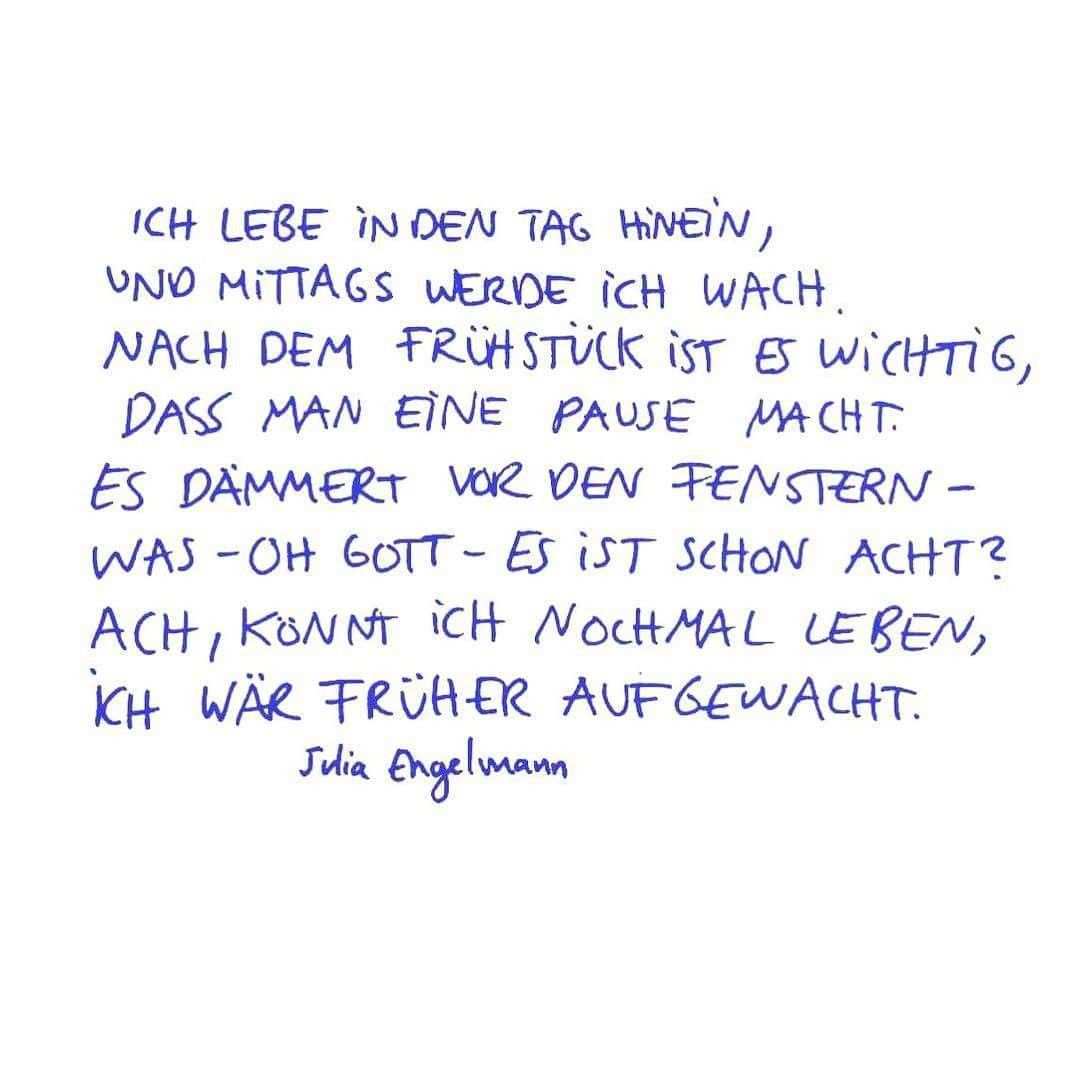 ICH LEBE IN DEN TAG HINEIN,
UND MITTAGS WERDE ICH WACH.
NACH DEM FRÜHSTÜCK IST ES WICHTIG,
DASS MAN EINE PAUSE MACHT.
ES DÄMMERT VOR DEN FENSTERN –
WAS – OH GOTT – ES IST SCHON ACHT?
ACH, KÖNNT ICH NOCHMAL LEBEN,
ICH WÄR FRÜHER AUFGEWACHT.
Julia Engelmann